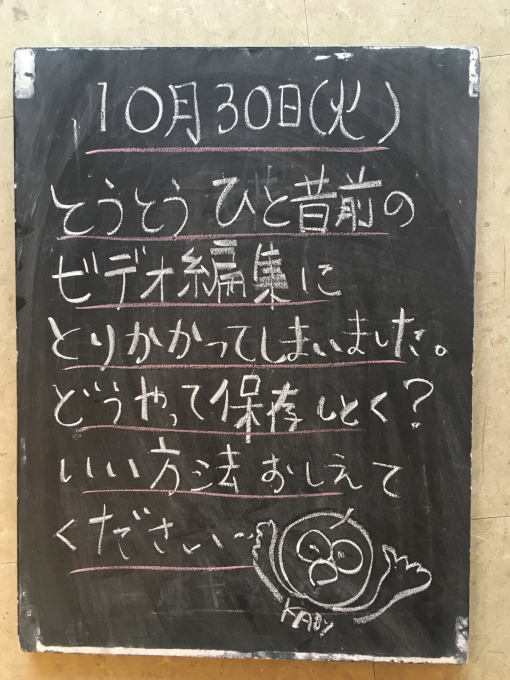 10月30日(火)
とうとう ひと昔前の
ビデオ編集に
とりかかってしまいました。
どうやって保存しとく?
いい方法おしえて
ください…
KABY